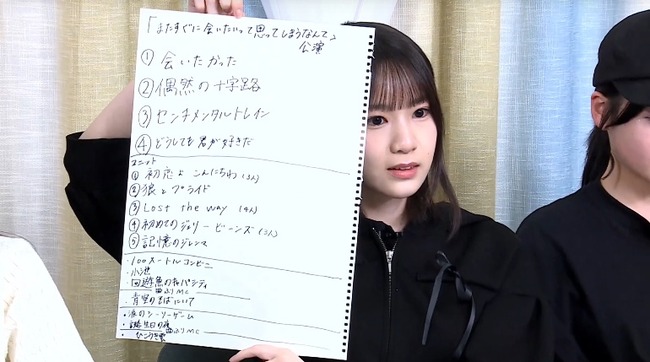 「またすぐに会いたいって思ってしまうなんて」
公演
① 会いたかった
② 偶然の十字路
③ センチメンタルトレイン
④ どうしても君が好きだ
ユニット
① 初恋よ こんにちは(3人)
② 狼とプライド
③ Lost the way (4人)
④ 初めてのジェリービーンズ(3人)
⑤ 記憶のジレンマ
・100メートルコンビニ
・小池
・回遊魚のキャパシティ
曲ふりMC
・青空のそばにいて
・涙のシーソーゲーム
・誕生日の夜
曲ふりMC
・ひこうき雲